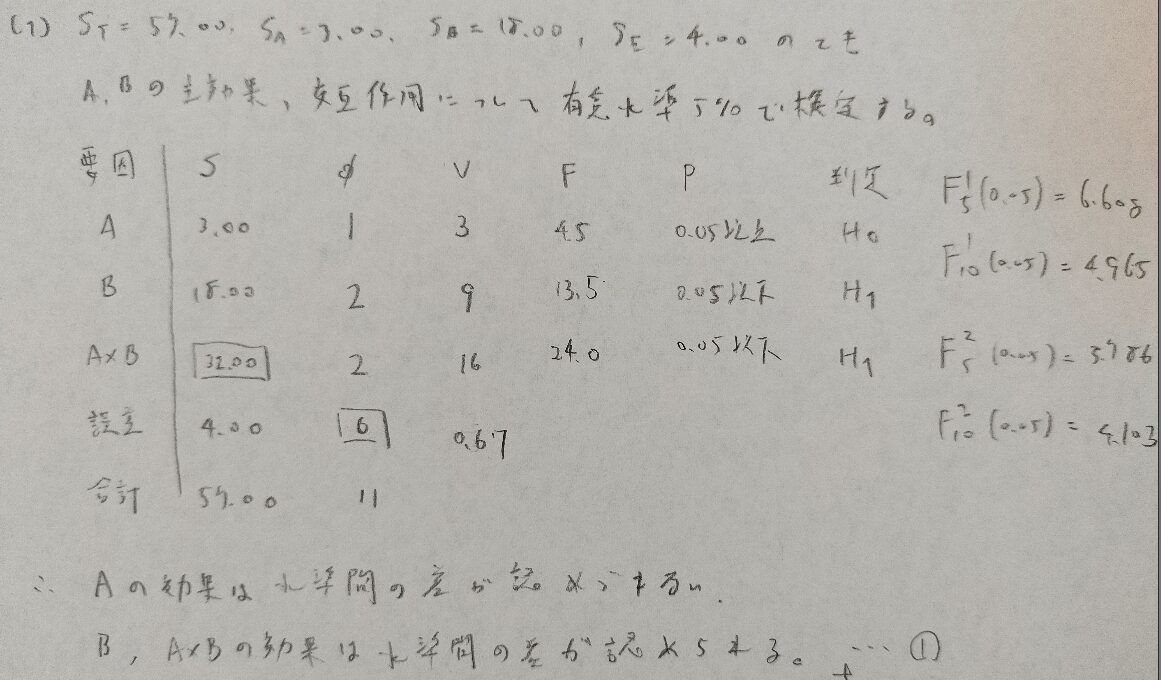 (1) S_T = 57.00, S_A = 3.00, S_B = 18.00, S_E = 4.00 のとき
A, Bの主効果、交互作用について有意水準5%で検定する。
要因 S φ V F P 判定 F^1_5(0.05) = 6.608
A 3.00 1 3 4.5 0.05以上 H0
F^1_10(0.05) = 4.965
B 18.00 2 9 13.5 0.05以下 H1
A×B 32.00 2 16 24.0 0.05以下 H1 F^2_5(0.05) = 5.786
誤差 4.00 6 0.67 F^2_10(0.05) = 4.103
合計 57.00 11
∴ Aの効果は水準間の差が認めづれない.
B, A×Bの効果は水準間の差が認められる。 … ①